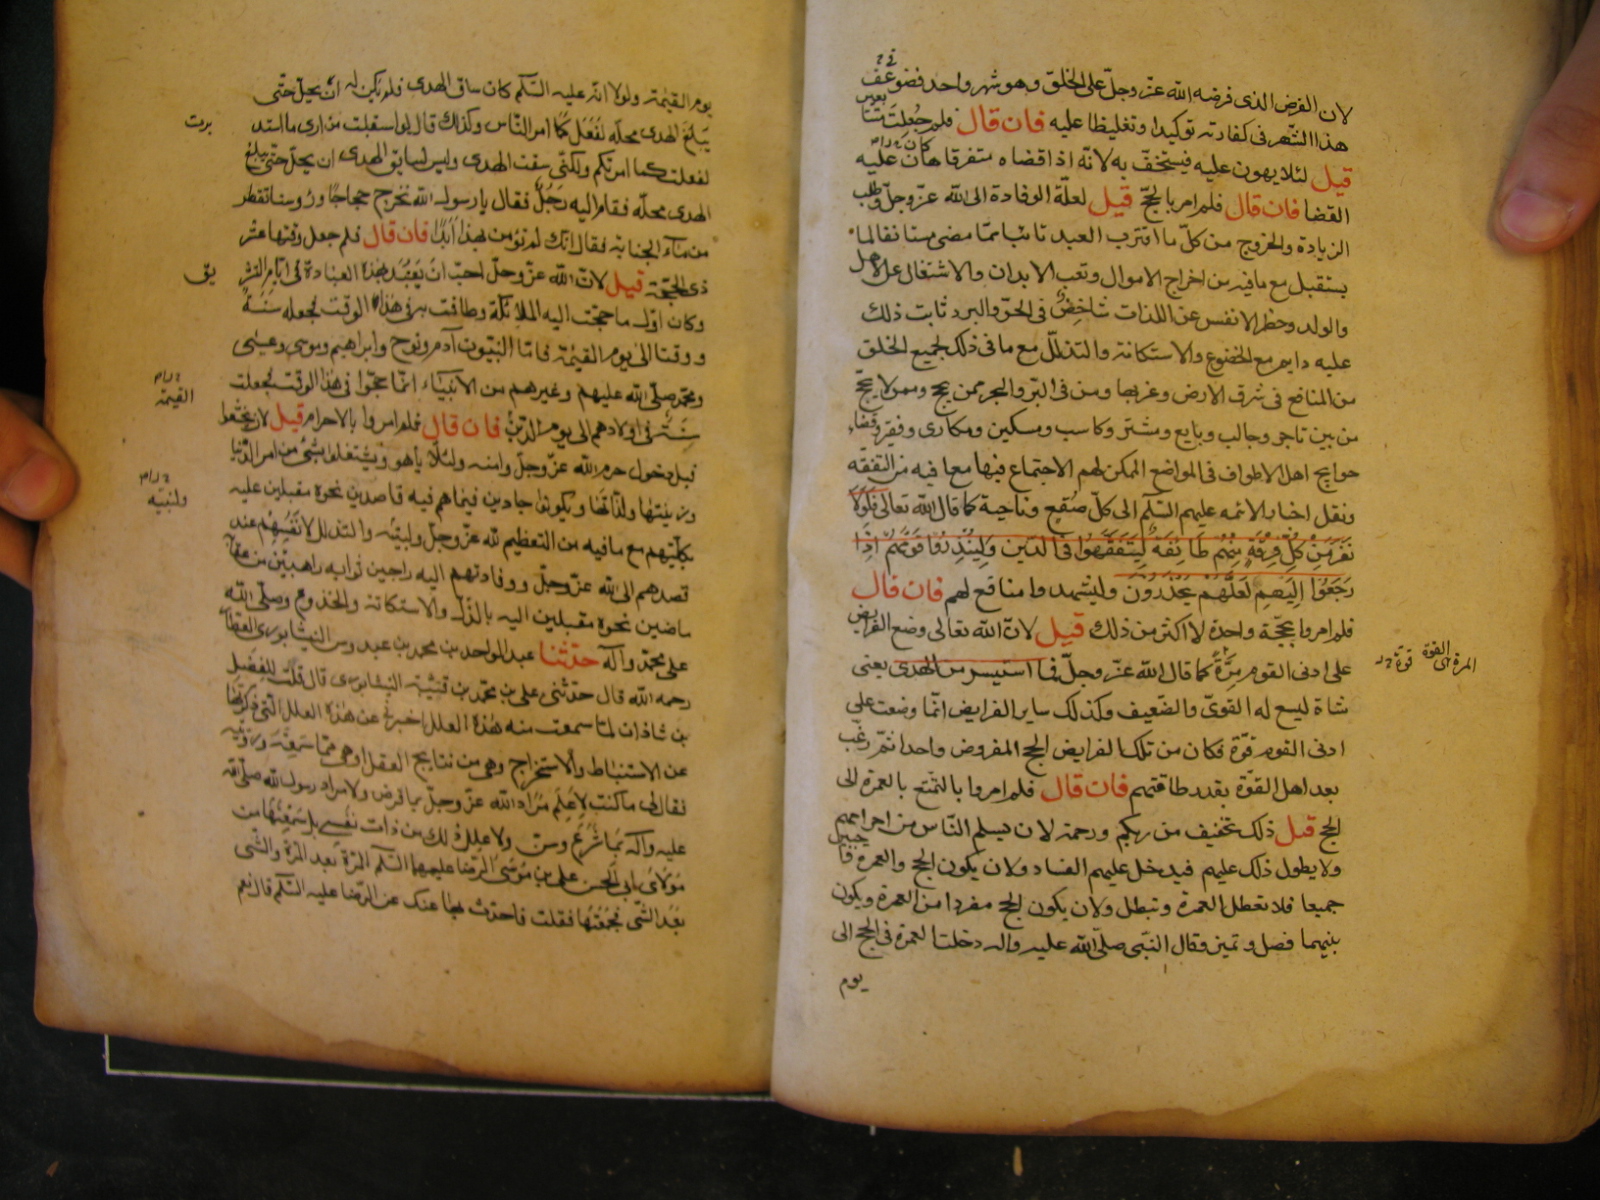 لان الفرض الذى فرضه الله عز وجل على الخلق وهو شهر واحد فضوعف
هذا الشهر فى كفارته توكيدا وتغليظا عليه فان قال فلم جعلت متتا بعين
قيل لئلا يهون عليه فيستخف به لانه اذا قضاه متفرقا هان عليه
القضا فان قال فلم امر بالحج قيل لعلة الوفادة الى الله عز وجل وطلب
الزيادة والخروج من كل ما اقترب العبد تائبا مما مضى مستانفا لما
يستقبل مع مافيه من اخراج الاموال وتعب الابدان والاشتغال عن الاهل
والولد وحظر الانفس عن اللذات شاخص فى الحر والبرد ثابت ذلك
عليه دايم مع الخضوع والاستكانة والتذلل مع ما فى ذلك لجميع الخلق
من المنافع فى شرق الارض وغربها ومن فى البر والبحر ممن يحج وممن لا يحج
من بين تاجر وجالب وبايع ومشتر وكاسب ومسكين ومكارى وفقير وقضاء
حوايج اهل الاطراف فى المواضع الممكن لهم الاجتماع فيها مع ما فيه من التفقه
ونقل اخبار الائمه عليهم السلم الى كل صقع وناحية كما قال الله تعالى فلولا
نفر من كل فرقة منهم طائفة ليتفقهوا فى الدين ولينذروا قومهم اذا
رجعوا اليهم لعلهم يحذرون وليشهدوا منافع لهم فان قال
فلم امروا بحجة واحدة لا اكثر من ذلك قيل لان الله تعالى وضع الفرايض
على ادنى القوم مرة كما قال الله عز وجل فما استيسر من الهدى يعنى
المرة اى القوة قوة
شاة ليسع له القوى والضعيف وكذلك ساير الفرايض انما وضعت على
ادنى القوم قوة فكان من تلك الفرايض الحج المفروض واحدا ثم رغب
بعد اهل القوة بقدر طاقتهم فان قال فلم امروا بالتمتع بالعمرة الى
الحج قيل ذلك تخفيف من ربكم ورحمة لان يسلم الناس من احرامهم
ولا يطول ذلك عليهم فيدخل عليهم الفساد ولان يكون الحج والعمرة واجبين
جميعا فلا تعطل العمرة وتبطل ولان يكون الحج مفردا من العمرة ويكون
بينهما فصل وتميز وقال النبى صلى الله عليه واله دخلت العمرة فى الحج الى
يوم
يوم القيمة ولولا انه عليه السلم كان ساق الهدى فلم يكن له ان يحل حتى
يبلغ الهدى محله لفعل كما امر الناس وكذلك قال لو استقبلت من امرى ما استد
برت
لفعلت كما امرتكم ولكنى سقت الهدى وليس لسايق الهدى ان يحل حتى يبلغ
الهدى محله فقام اليه رجل فقال يا رسول الله نخرج حجاجا ورؤسنا تقطر
من ماء الجنابة فقال انك لم تؤمن بهذا ابدا فان قال فلم جعل وقتها عشر
ذى الحجة قيل لان الله عز وجل احب ان يعبد بهذه العبادة فى ايام التشر
يق
وكان اول ما حجت اليه الملائكة وطافت به فى هذا الوقت فجعله سنة
ووقتا الى يوم القيمة فاما النبيون آدم ونوح وابراهيم وموسى وعيسى
ومحمد صلى الله عليهم وغيرهم من الانبياء انما حجوا فى هذا الوقت فجعلت
القيمة
سنة فى اولادهم الى يوم الدين فان قال فلم امروا بالاحرام قيل لان يخشعوا
قبل دخول حرم الله عز وجل وامنه ولئلا يلهو ويشتغلوا بشئ من امر الدنيا
وزينتها ولذاتها ويكونوا جادين فيما هم فيه قاصدين نحوه مقبلين عليه
ولنبيه
بكليتهم مع مافيه من التعظيم لله عز وجل ولبيته والتذلل لانفسهم عند
قصدهم الى الله عز وجل ووفادتهم اليه راجين ثوابه راهبين من عقابه
ماضين نحوه مقبلين اليه بالذل والاستكانة والخضوع وصلى الله
على محمد وآله حدثنا عبد الواحد بن محمد بن عبدوس النيشابورى العطار
رحمه الله قال حدثنى على بن محمد بن قتيبة النيشابورى قال قلت للفضل
بن شاذان لما سمعت منه هذه العلل اخبرنى عن هذه العلل التى ذكرتها
عن الاستنباط والاستخراج وهى من نتايج العقل او هى مما سمعته ورويته
فقال لى ما كنت لاعلم مراد الله عز وجل بما فرض ولا مراد رسول الله صلى الله
عليه وآله بما شرع وسن ولا علل ذلك من ذات نفسى بل سمعتها من
مولاى ابى الحسن على بن موسى الرضا عليهما السلم المرة بعد المرة والشى
بعد الشى فجمعتها فقلت فاحدث بها عنك عن الرضا عليه السلم قال نعم